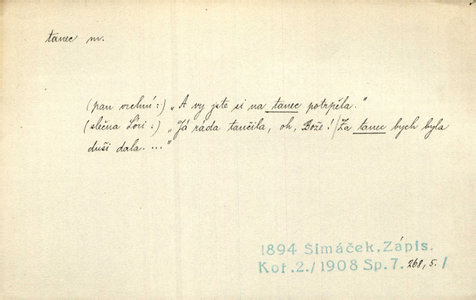 tanec m.
(pan vrchní:) „A vy jste si na tanec potrpěla."
(slečna Lori:) „Já ráda tančila, oh, Bože! Za tanec bych byla
duši dala. ..."
1894 Šimáček. Zápis.
Kof. 2./1908 Sp. 7. 268, 5. /